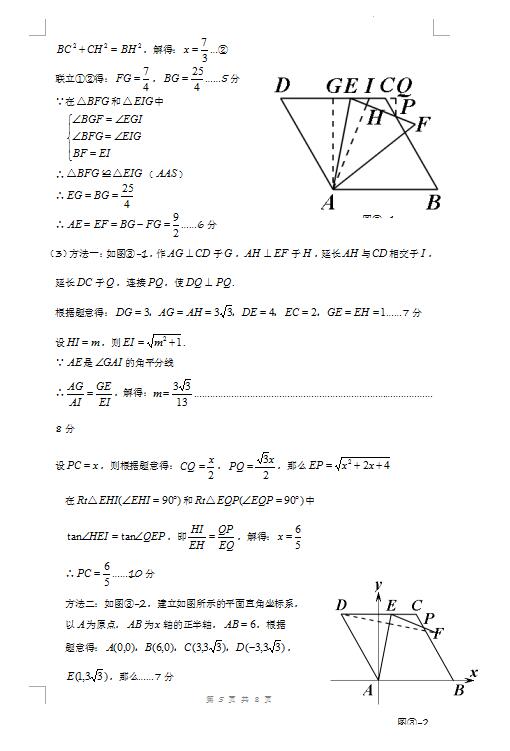 BC²+CH²=BH²，解得：x=7/3…②
联立①②得：FG=7/4，BG=25/4……5分
∵在△BFG和△EIG中
{∠BGF=∠EGI
∠BFG=∠EIG
BF=EI
∴△BFG≌△EIG（AAS）
∴EG=BG=25/4
∴AE=EF=BG−FG=9/2……6分
D G E I C Q
P
H
F
A B
（3）方法一：如图③-1，作AG⊥CD于G，AH⊥EF于H，延长AH与CD相交于I，
延长DC于Q，连接PQ，使DQ⊥PQ.
根据题意得：DG=3，AG=AH=3√3，DE=4，EC=2，GE=EH=1……7分
设HI=m，则EI=√(m²+1).
∵AE是∠GAI的角平分线
∴AG/AI=GE/EI，解得：m=3√3/13……
8分
设PC=x，则根据题意得：CQ=x/2，PQ=√3x/2，那么EP=√(x²+2x+4)
在Rt△EHI(∠EHI=90°)和Rt△EQP(∠EQP=90°)中
tan∠HEI=tan∠QEP，即HI/EH=QP/EQ，解得：x=6/5
∴PC=6/5……10分
方法二：如图③-2，建立如图所示的平面直角坐标系，
以A为原点，AB为x轴的正半轴，AB=6，根据
题意得：A(0,0)，B(6,0)，C(3,3√3)，D(−3,3√3)，
E(1,3√3)，那么……7分
y
D E C
P
F
x
A B
图③-2
第 5 页 共 8 页